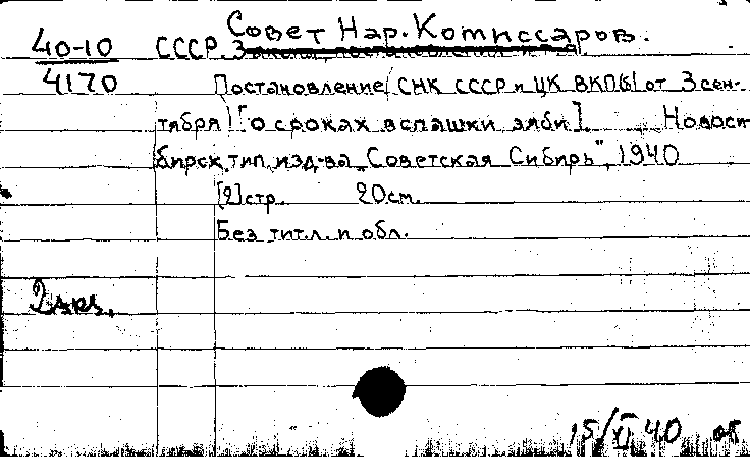 Совет Нар. Комиссаров.
40-10 СССР. Законы, постановления и т.д.
4170 Постановление СНК СССР и ЦК ВКП(б) от 3 сен-
тября [о сроках вспашки зяби]. Новоси-
бирск, тип. изд-ва „Советская Сибирь", 1940
[2] стр. 20 см.
Без титл. л. и обл.
2 экз.
15/XI 40